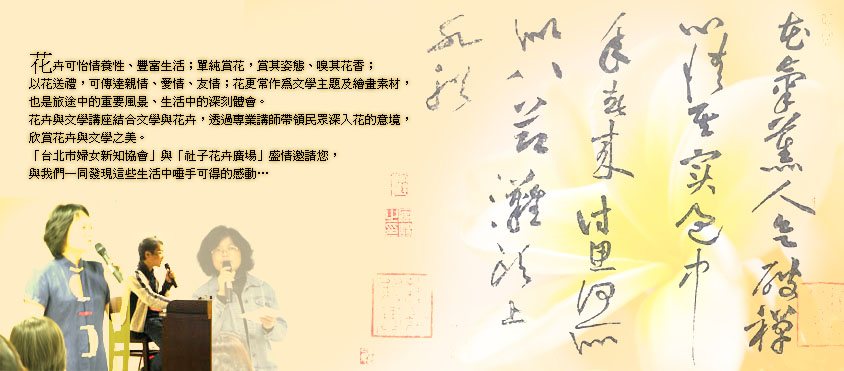 花卉可怡情養性、豐富生活；單純賞花，賞其姿態、嗅其花香；
以花送禮，可傳達親情、愛情、友情；花更常作為文學主題及繪畫素材，
也是旅途中的重要風景、生活中的深刻體會。
花卉與文學講座結合文學與花卉，透過專業講師帶領民眾深入花的意境，
欣賞花卉與文學之美。
「台北市婦女新知協會」與「社子花卉廣場」盛情邀請您，
與我們一同發現這些生活中唾手可得的感動…
花氣薰人欲破禪
心情其實過中
年春來詩思何所
似八節灘頭上
水船